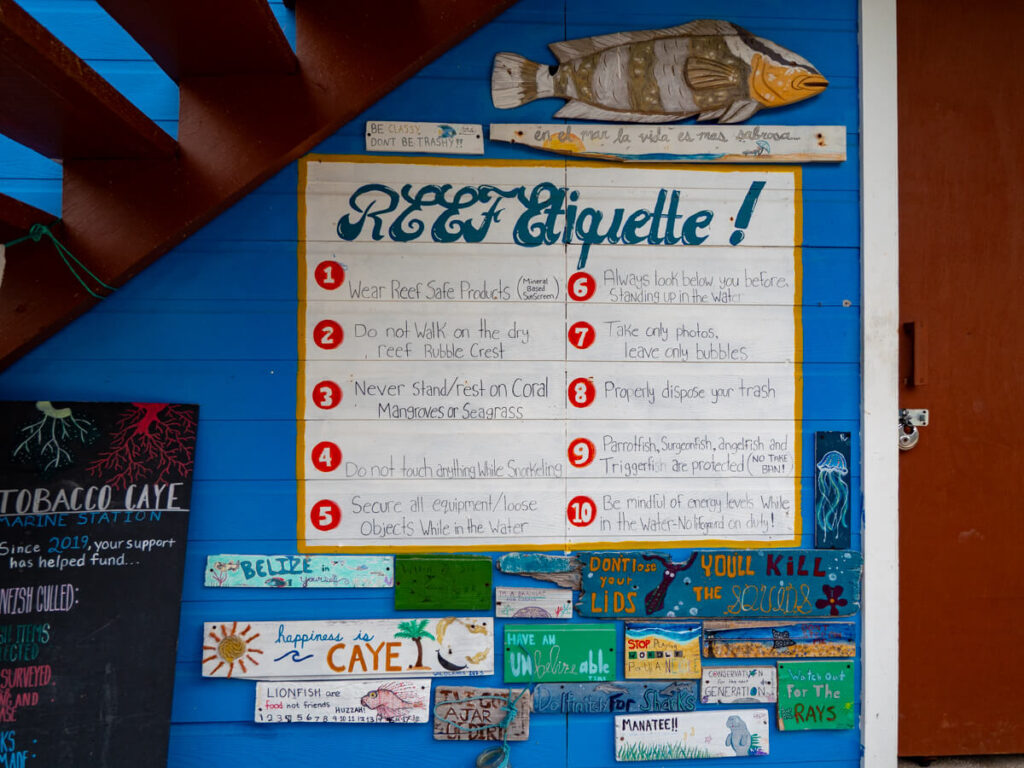 BE CLASSY
DONT BE TRASHY!!
én el mar la vida es mas sabrosa...
REEF Etiquette!
1 Wear Reef Safe Products (Mineral Based SunScreen)
2 Do not Walk on the dry
reef Rubble Crest
3 Never stand/rest on Coral
Mangroves or Seagrass
4 Do not touch anything While Snorkeling
5 Secure all equipment/loose
Objects While in the Water
6 Always look below you before
Standing up in the Water
7 Take only photos,
leave only bubbles
8 Properly dispose your trash
9 Parrotfish, Surgeonfish, angelfish and
Triggerfish are protected (NO TAKE BAN!)
10 Be mindful of energy levels While
in the Water-No lifeguard on duty!
TOBACCO CAYE
MARINE STATION
Since 2019, your support
has helped fund...
NFISH CULLED:
ITEMS
CTED
SURVEYED
ING AND
ASE
KS
MADE:
BELIZE in yourself
DONT lose
your
LIDS
YOU'LL KILL
THE
SQUIDS
happiness is
CAYE
HAVE AN
UNbelizeable
TIME
STOP
CONSERVATION
for the next
GENERATION
Watch out
FOR THE
RAYS
LIONFISH are
food not friends
HUZZAH!
AJAR
Dolfinitely FOR Sharks
MANATEE!!